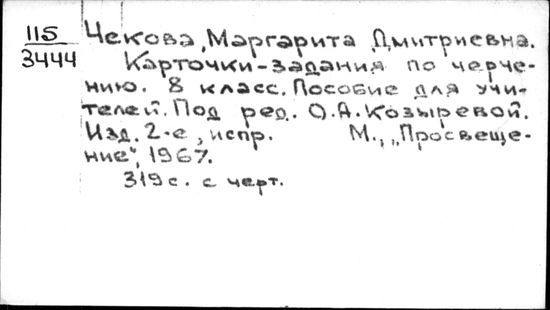 115
3444
Чекова, Маргарита Дмитриевна.
Карточки-задания по черче-
нию. 8 класс. Пособие для учи-
телей. Под ред. О.А. Козыревой.
Изд. 2-е, испр. М., „Просвеще-
ние", 1967.
319 с. с черт.